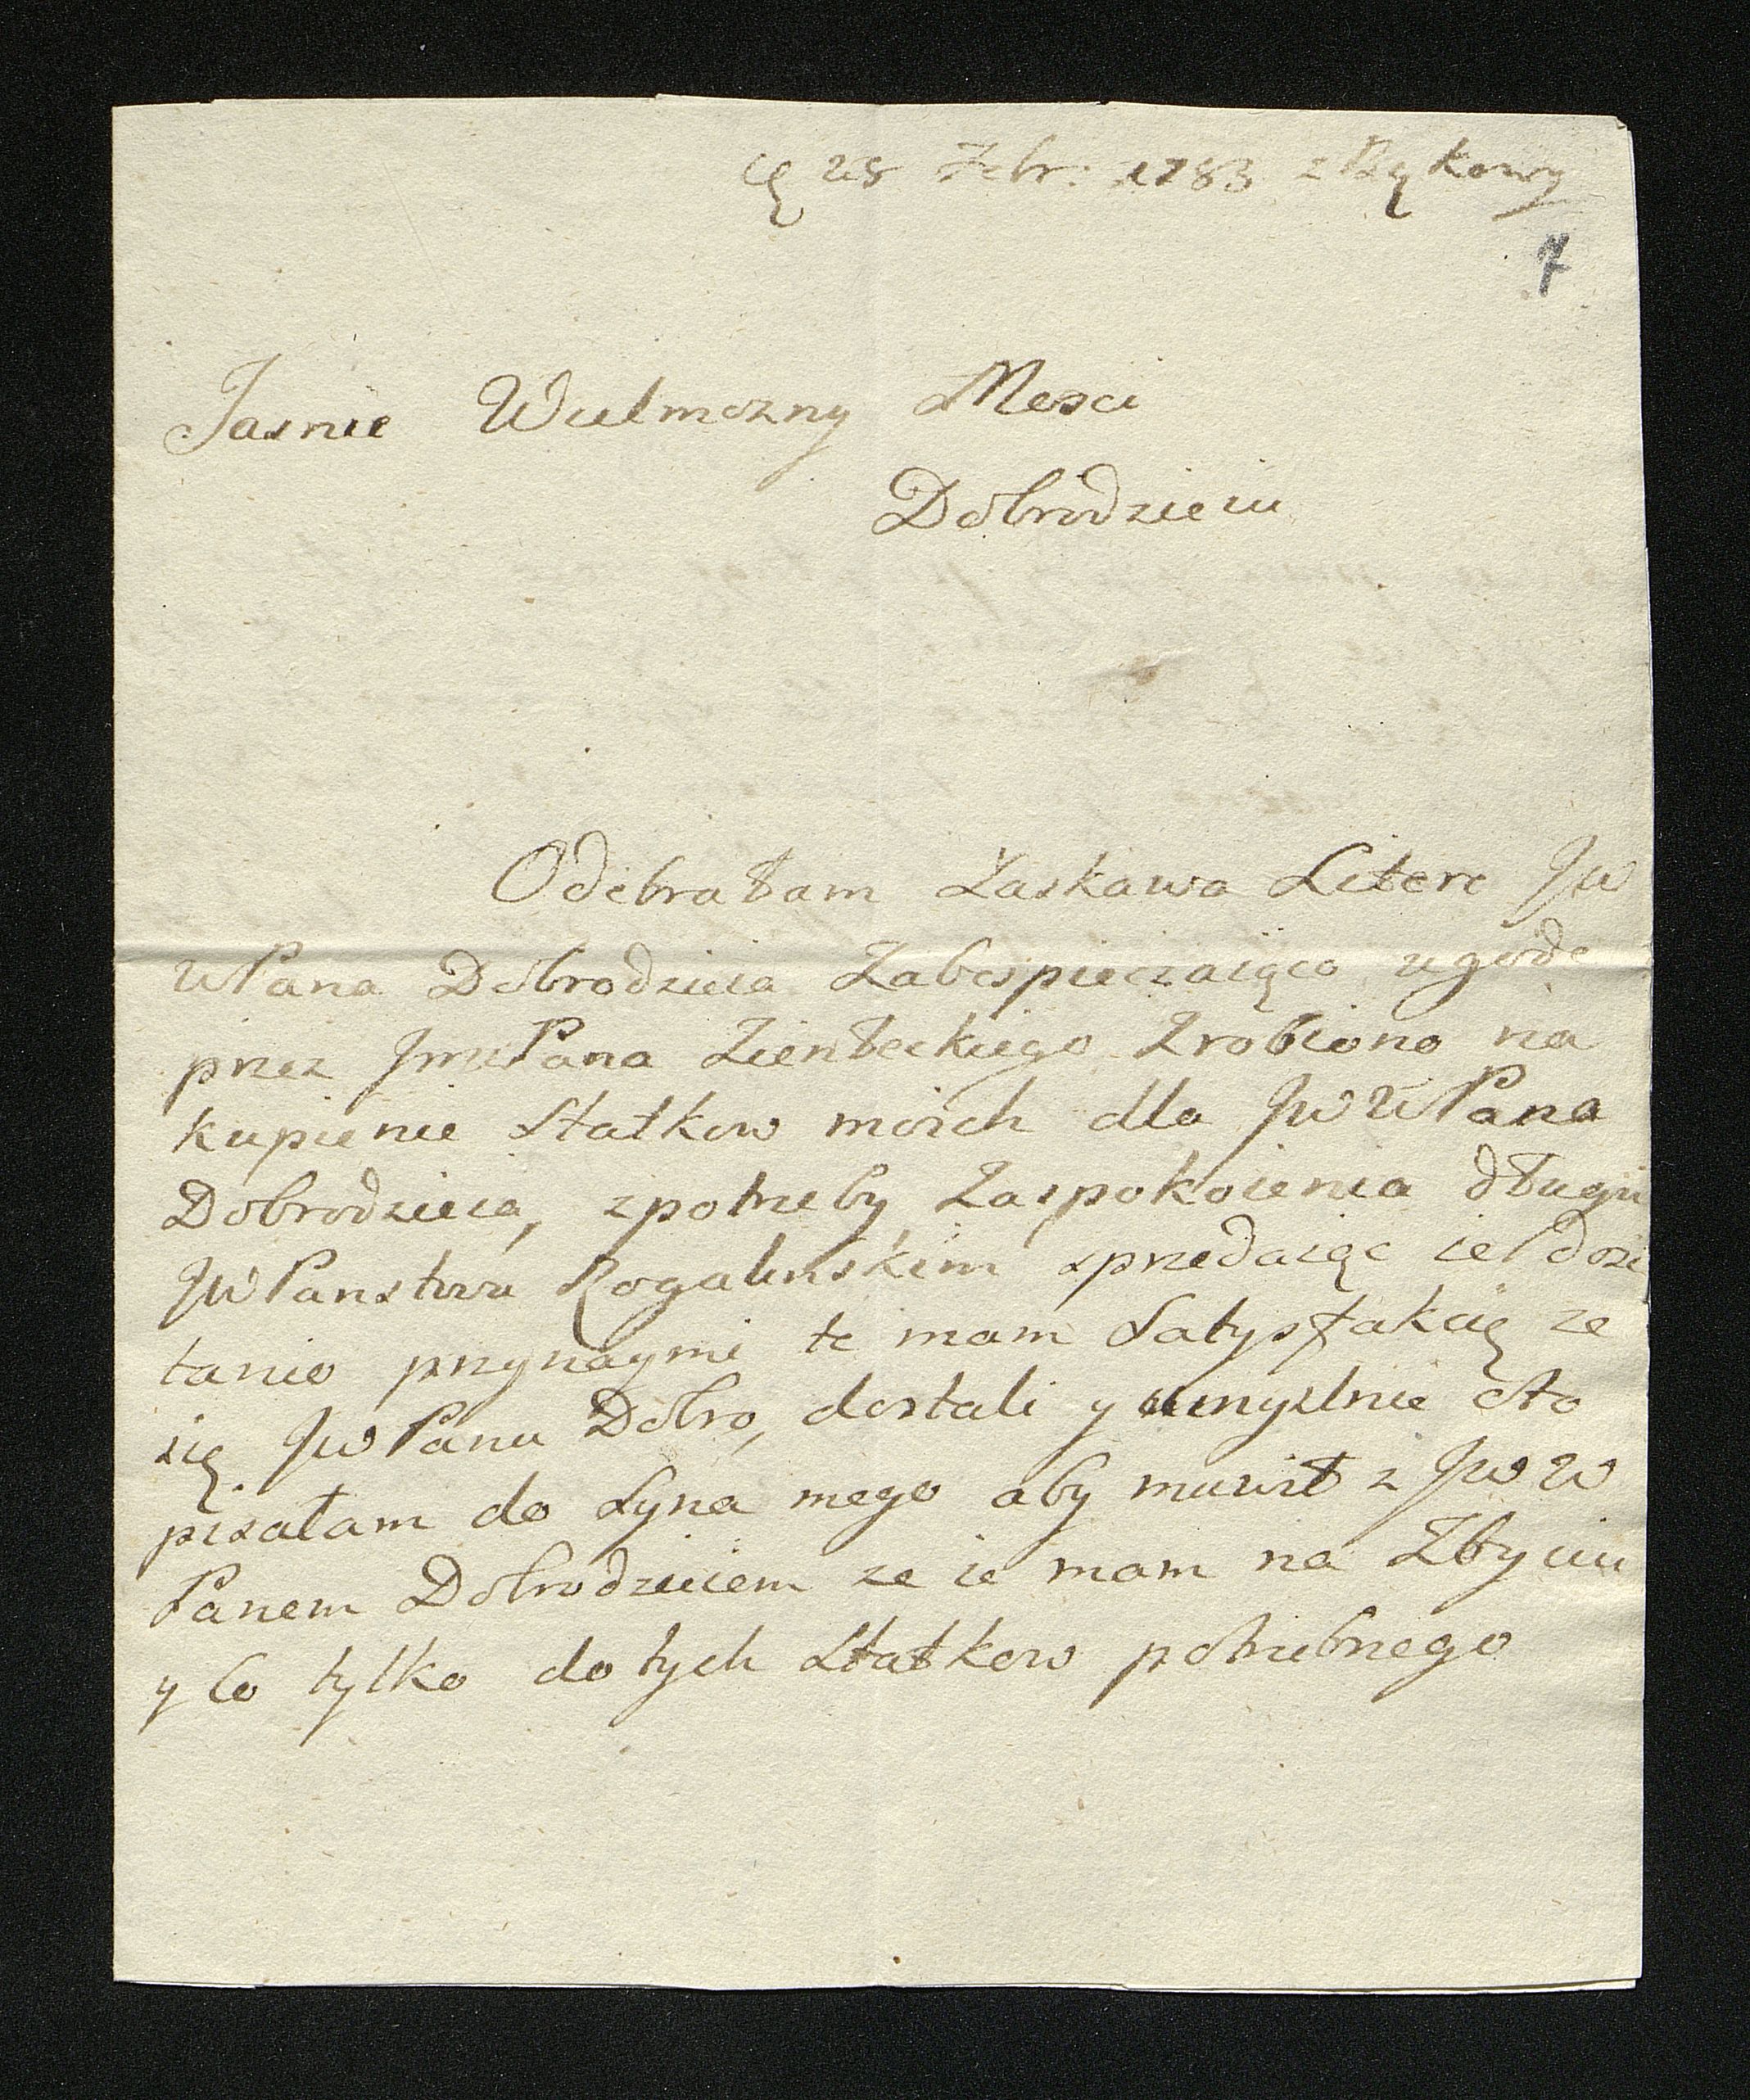 28 Febr: 1783 z Bąkowy
7
Jasnie Wielmozny Mosci
Dobrodzieiu
Odebrałam Łaskawo Litere JW
WPana Dobrodzieia Zabespieczaiąco ugode
przez JmPana Zienteckiego Zrobiono na
kupienie Statkow moich dla JWWPana
Dobrodzieia, zpotrzeby Zaspokoienia długu
JWPanstwu Rogalinskim sprzedaiąc ie dosc
tanio przynaymi te mam Satysfakcię ze
się JWPanu Dobro, dostali y umyslnie oto
pisałam do Syna mego aby muwił z JWW
Panem Dobrodzieiem ze ie mam na Zbyciu
y Co tylko do tych Statkow potrzebnego